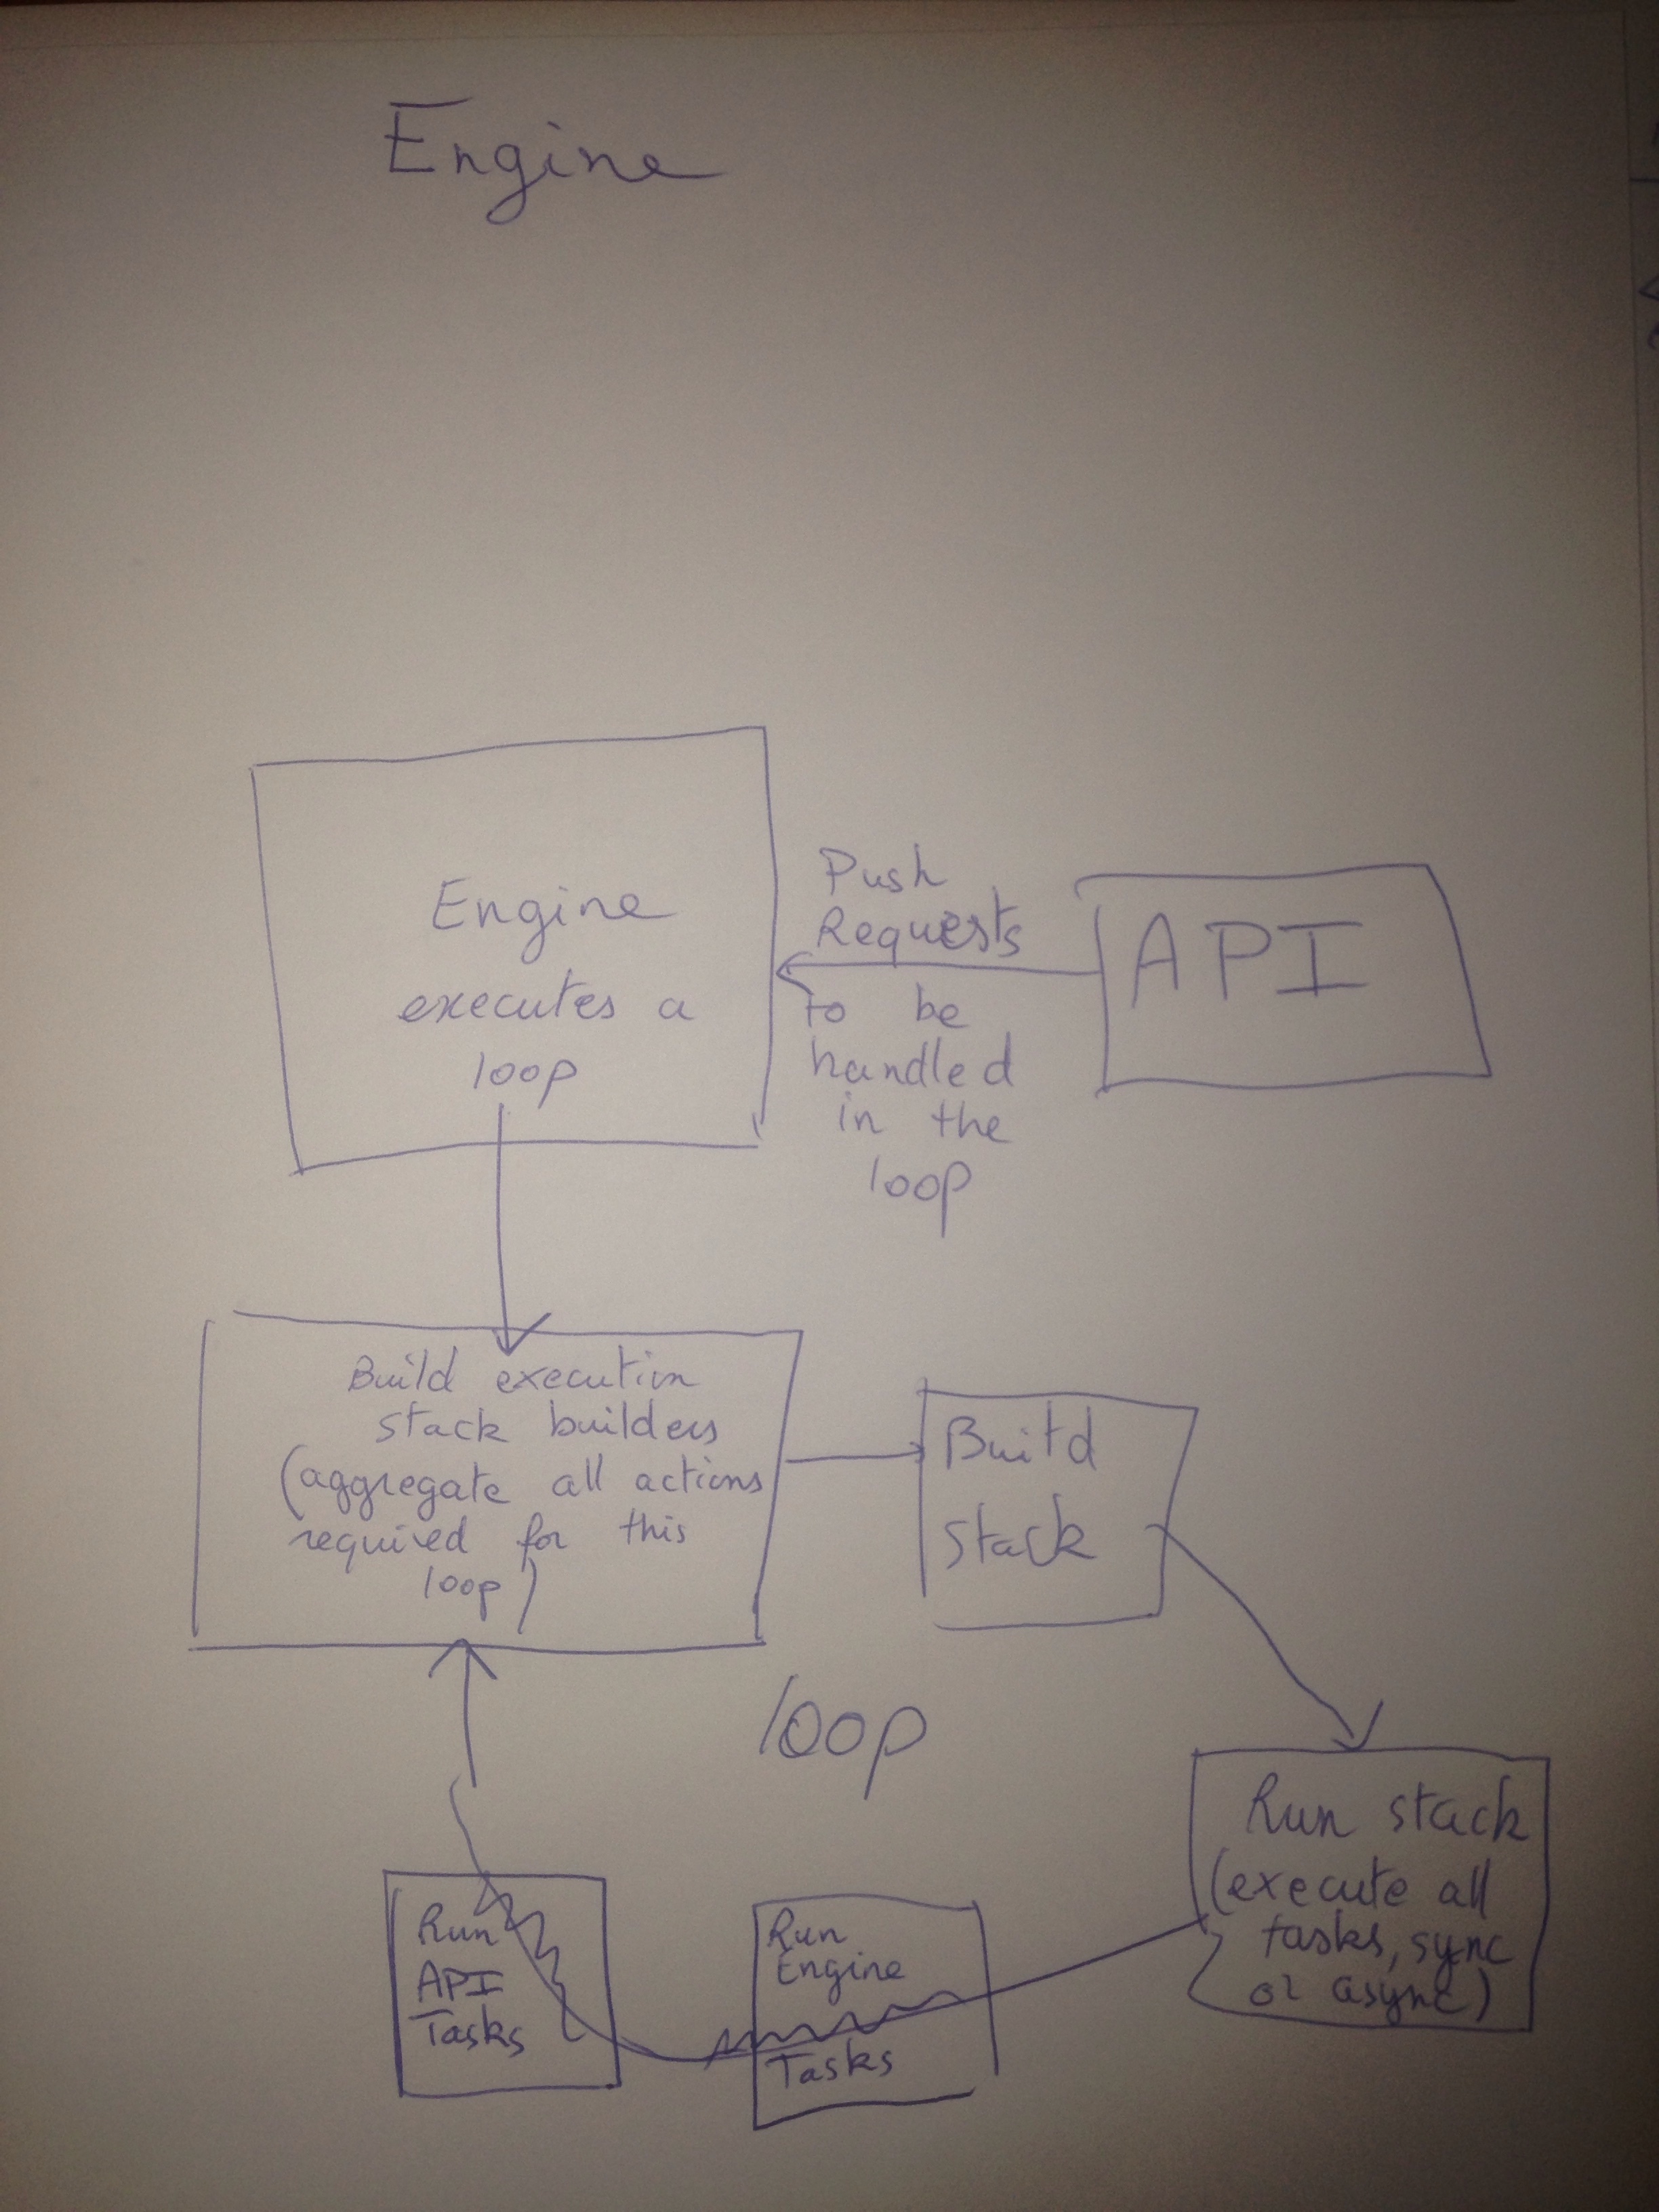 Engine
Engine
executes a
loop
Push
Requests
to be
handled
in the
loop
API
Build execution
stack builders
(aggregate all actions
required for this
loop)
Build
stack
loop
Run stack
(execute all
tasks, sync
or async)
Run
Engine
Tasks
Run
API
Tasks